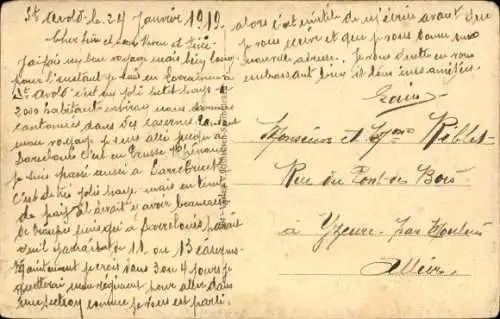 St Avold le 24 Janvier 1919
Cher frère et
J'ai fais un bon voyage mais bien long
pour l'instant je suis en Lorraine à
St Avold c'est un joli petit pays de
2000 habitants environ nous sommes
cantonnés dans des casernes
mon voyage je suis allé jusqu'à
Sarrelouis c'est en Prusse Rhénane
je suis passé aussi à Sarrebruck
C'est de très jolis pays mais en temps
de paix il devait y avoir beaucoup
de troupes puisqu'à Sarrelouis
qu'il y a 11 ou 13 casernes
Maintenant je crois dans 3 ou 4 jours je
quitterai mon régiment pour aller dans
comme je vous est parlé.
alors c'est inutile de m'écrire avant que
je vous écrive et que je vous donne ma
nouvelle adresse. Je vous quitte en vous
embrassant bien fort mes amitiés.
Monsieur et Mme Riblet
Rue du Pont des Bois
à Yzeure par Moulins
Allier